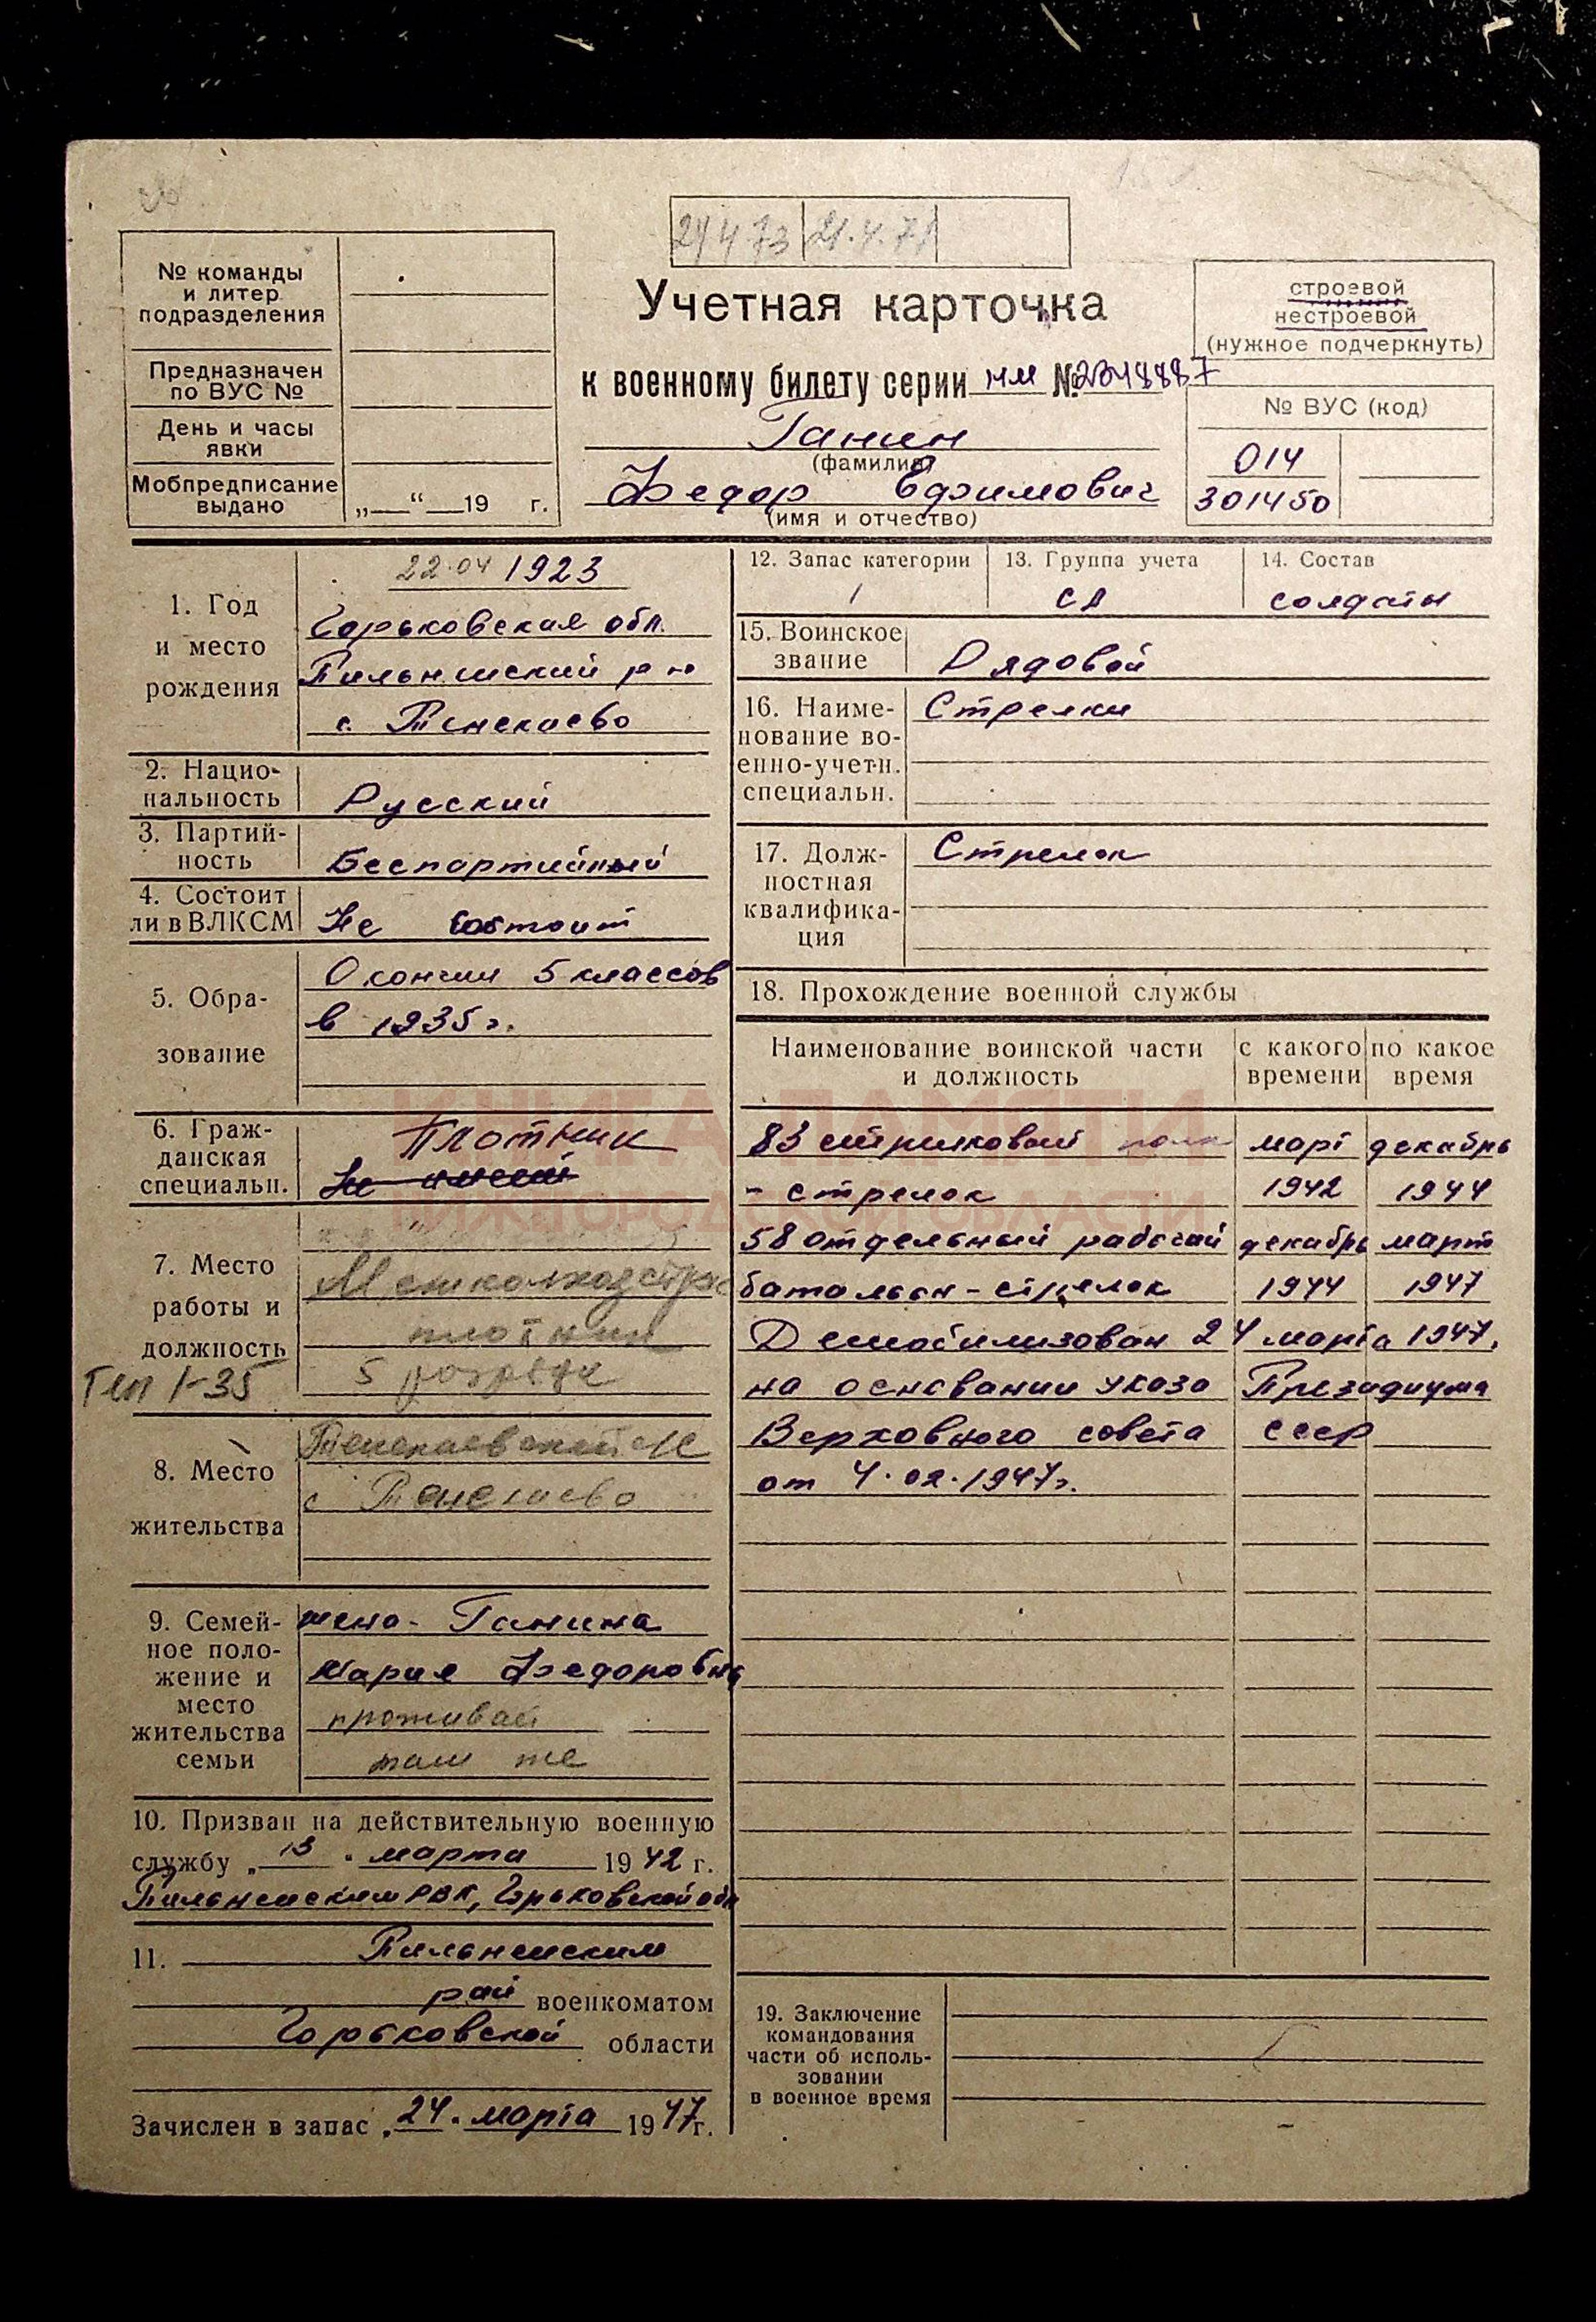 24 4 73 21.4.71
№ команды
и литер
подразделения
Предназначен
по ВУС №
День и часы
явки
Мобпредписание
выдано „ “ 19 г.
Учетная карточка
к военному билету серии нм № 2348887
Ганин
(фамилия)
Федор Ефимович
(имя и отчество)
строевой
нестроевой
(нужное подчеркнуть)
№ ВУС (код)
014
301450
1. Год
и место
рождения
22.04 1923
Горьковская обл.
Пильнинский р-н
с. Тенекаево
2. Нацио-
нальность
Русский
3. Партий-
ность
Беспартийный
4. Состоит
ли в ВЛКСМ
Не состоит
5. Обра-
зование
Окончил 5 классов
в 1935 г.
6. Граж-
данская
специальн.
Плотник
Не имеет
7. Место
работы и
должность
Межколхозстрой
плотник
5 разряда
Тип 1-35
8. Место
жительства
Тенекаевский с/с
с Тенекаево
9. Семей-
ное поло-
жение и
место
жительства
семьи
жена - Ганина
Мария Федоровна
проживает
там же
10. Призван на действительную военную
службу „13" марта 1942 г.
Пильнинским РВК, Горьковской обл
11. Пильнинским
рай военкоматом
Горьковской области
Зачислен в запас „24" марта 1947 г.
12. Запас категории
1
13. Группа учета
СА
14. Состав
солдаты
15. Воинское
звание
Рядовой
16. Наиме-
нование во-
енно-учетн.
специальн.
Стрелки
17. Долж-
ностная
квалифика-
ция
Стрелок
18. Прохождение военной службы
Наименование воинской части
и должность
с какого
времени
по какое
время
83 стрелковый полк март декабрь
- стрелок 1942 1944
58 отдельный рабочий декабрь март
батальон - стрелок 1944 1947
Демобилизован 24 марта 1947.
на основании указа Президиума
Верховного совета СССР
от 4.02.1947 г.
19. Заключение
командования
части об исполь-
зовании
в военное время
КНИГА ПАМЯТИ
НИЖЕГОРОДСКОЙ ОБЛАСТИ